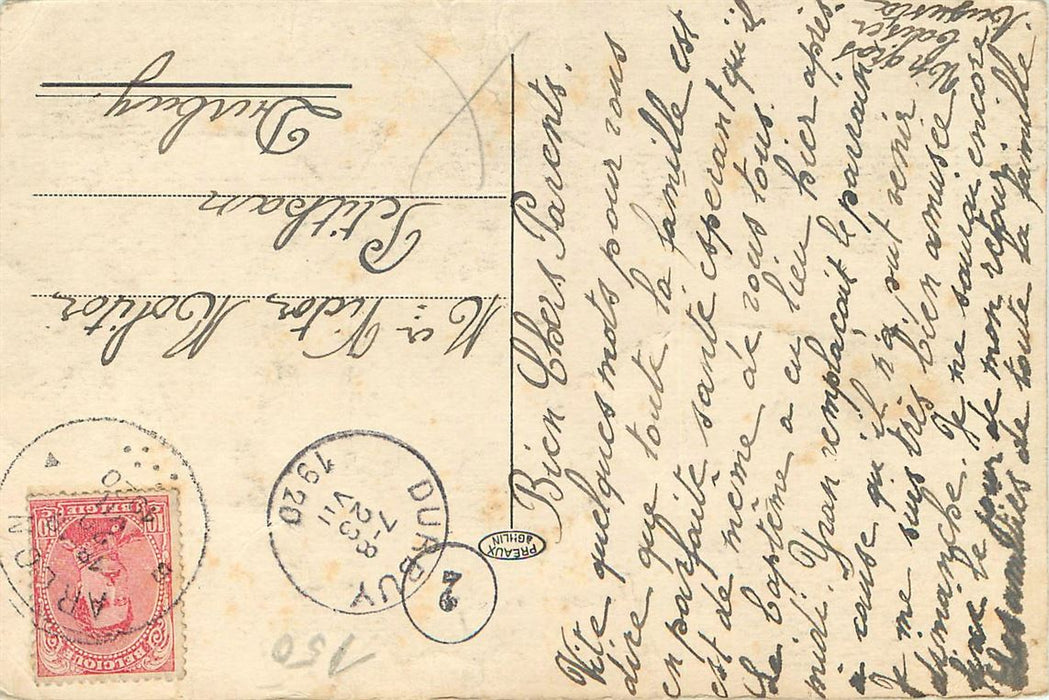 Bien Chers Parents.
Vite quelques mots pour vous
dire que toute la famille est
en parfaite santé esperant qu'il
est de même de vous tous.
Le baptême a eu lieu hier après
midi. Yvan remplaçait le parrain
a cause qu'il n'a pout venir
Je me suis très bien amusée
dimanche. Je ne saurai encore
fixe le jour de mon retour.
Des amitiés de toute la famille.
Un gros
baiser
Augusta
Mr Victor Molitor
Petithan
Durbuy
DURBUY
8-9
7-2
VII
1920
2
ARLON
BELGIQUE
BELGIE
10
10
PREAUX
GHLIN
150